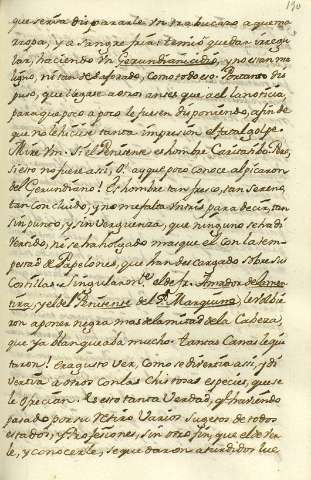 190
que seria dispararle Vn trabucazo a quema
rropa, y a sangre fria: temiò quedar irregu
lar, haciendo Vn Gerundianicidio, y no es tan ma
ligno, ni tan desalmado, como todo eso. Portanto dis
puso, que llegase a otros antes que a el la noticia,
para que poco a poco le fuesen disponiendo, a fin de
que no le hiciese tanta impresion el fatal golpe.
Mire Vm. si el Penitente es hombre Caritatibo. Pues
si esto no fuese asi, O! ay que poco conoce al picaron
del Gerundiano! Es hombre tan fresco, tan sereno,
tan Concluido, y no me falta Vn tris para decir, tan
sin punto, y sin Verguenza, que ninguno se ha di
Vertido, ni se ha holgado mas que el con la tem
pestad de Papelones, que han descargado sobre sus
Costillas. Singularmte. el de fr. Amador de la men
tira, y el del Penitente del P. Marquina, le ôbli
ron a poner negra mas de la mitad de la Cabeza,
que ya blanqueaba mucho. Tantas Canas le qui
taron! Era gusto Ver, Como se divertia asi, y di
Vertia a otros con las Chistosas especies, que se
le ofrecian. Es esto tanta Verdad, q. haviendo
pasado por su Retiro Varios Sugetos de todos
estados, y Profesiones, sin otro fin, que el de Ver
le, y Conocerle, se quedaron aturdidos lue